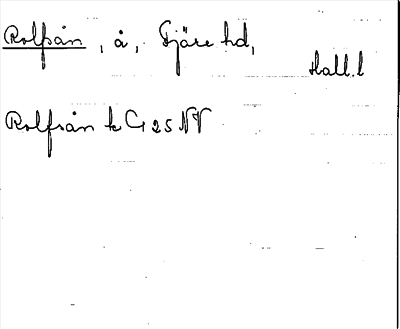 Rolfsån, å, Fjäre hd,
Hall. l
Rolfsån k G 25 NV